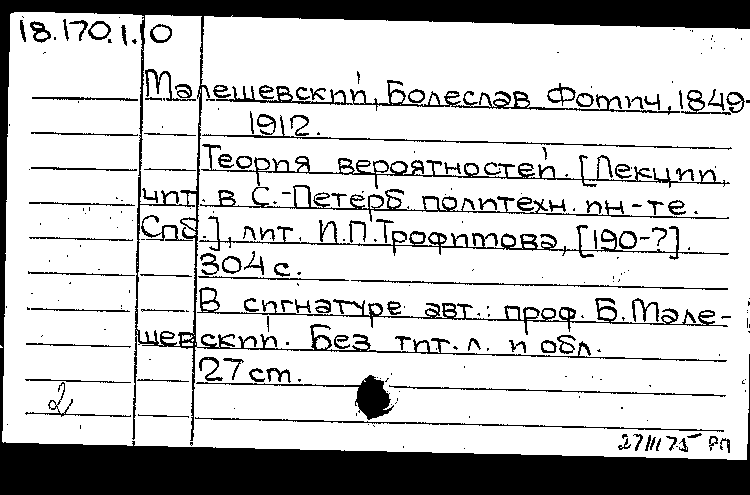 18.170.1.10
Малешевский, Болеслав Фотич, 1849-
1912.
Теория вероятностей. [Лекции,
чит. в С.-Петерб. политехн. ин-те.
Спб.], лит. И.П.Трофимова, [190-?].
304 с.
В сигнатуре авт.: проф. Б.Мале-
шевский. Без тит. л. и обл.
27 cm.
2
27 III 75 РП